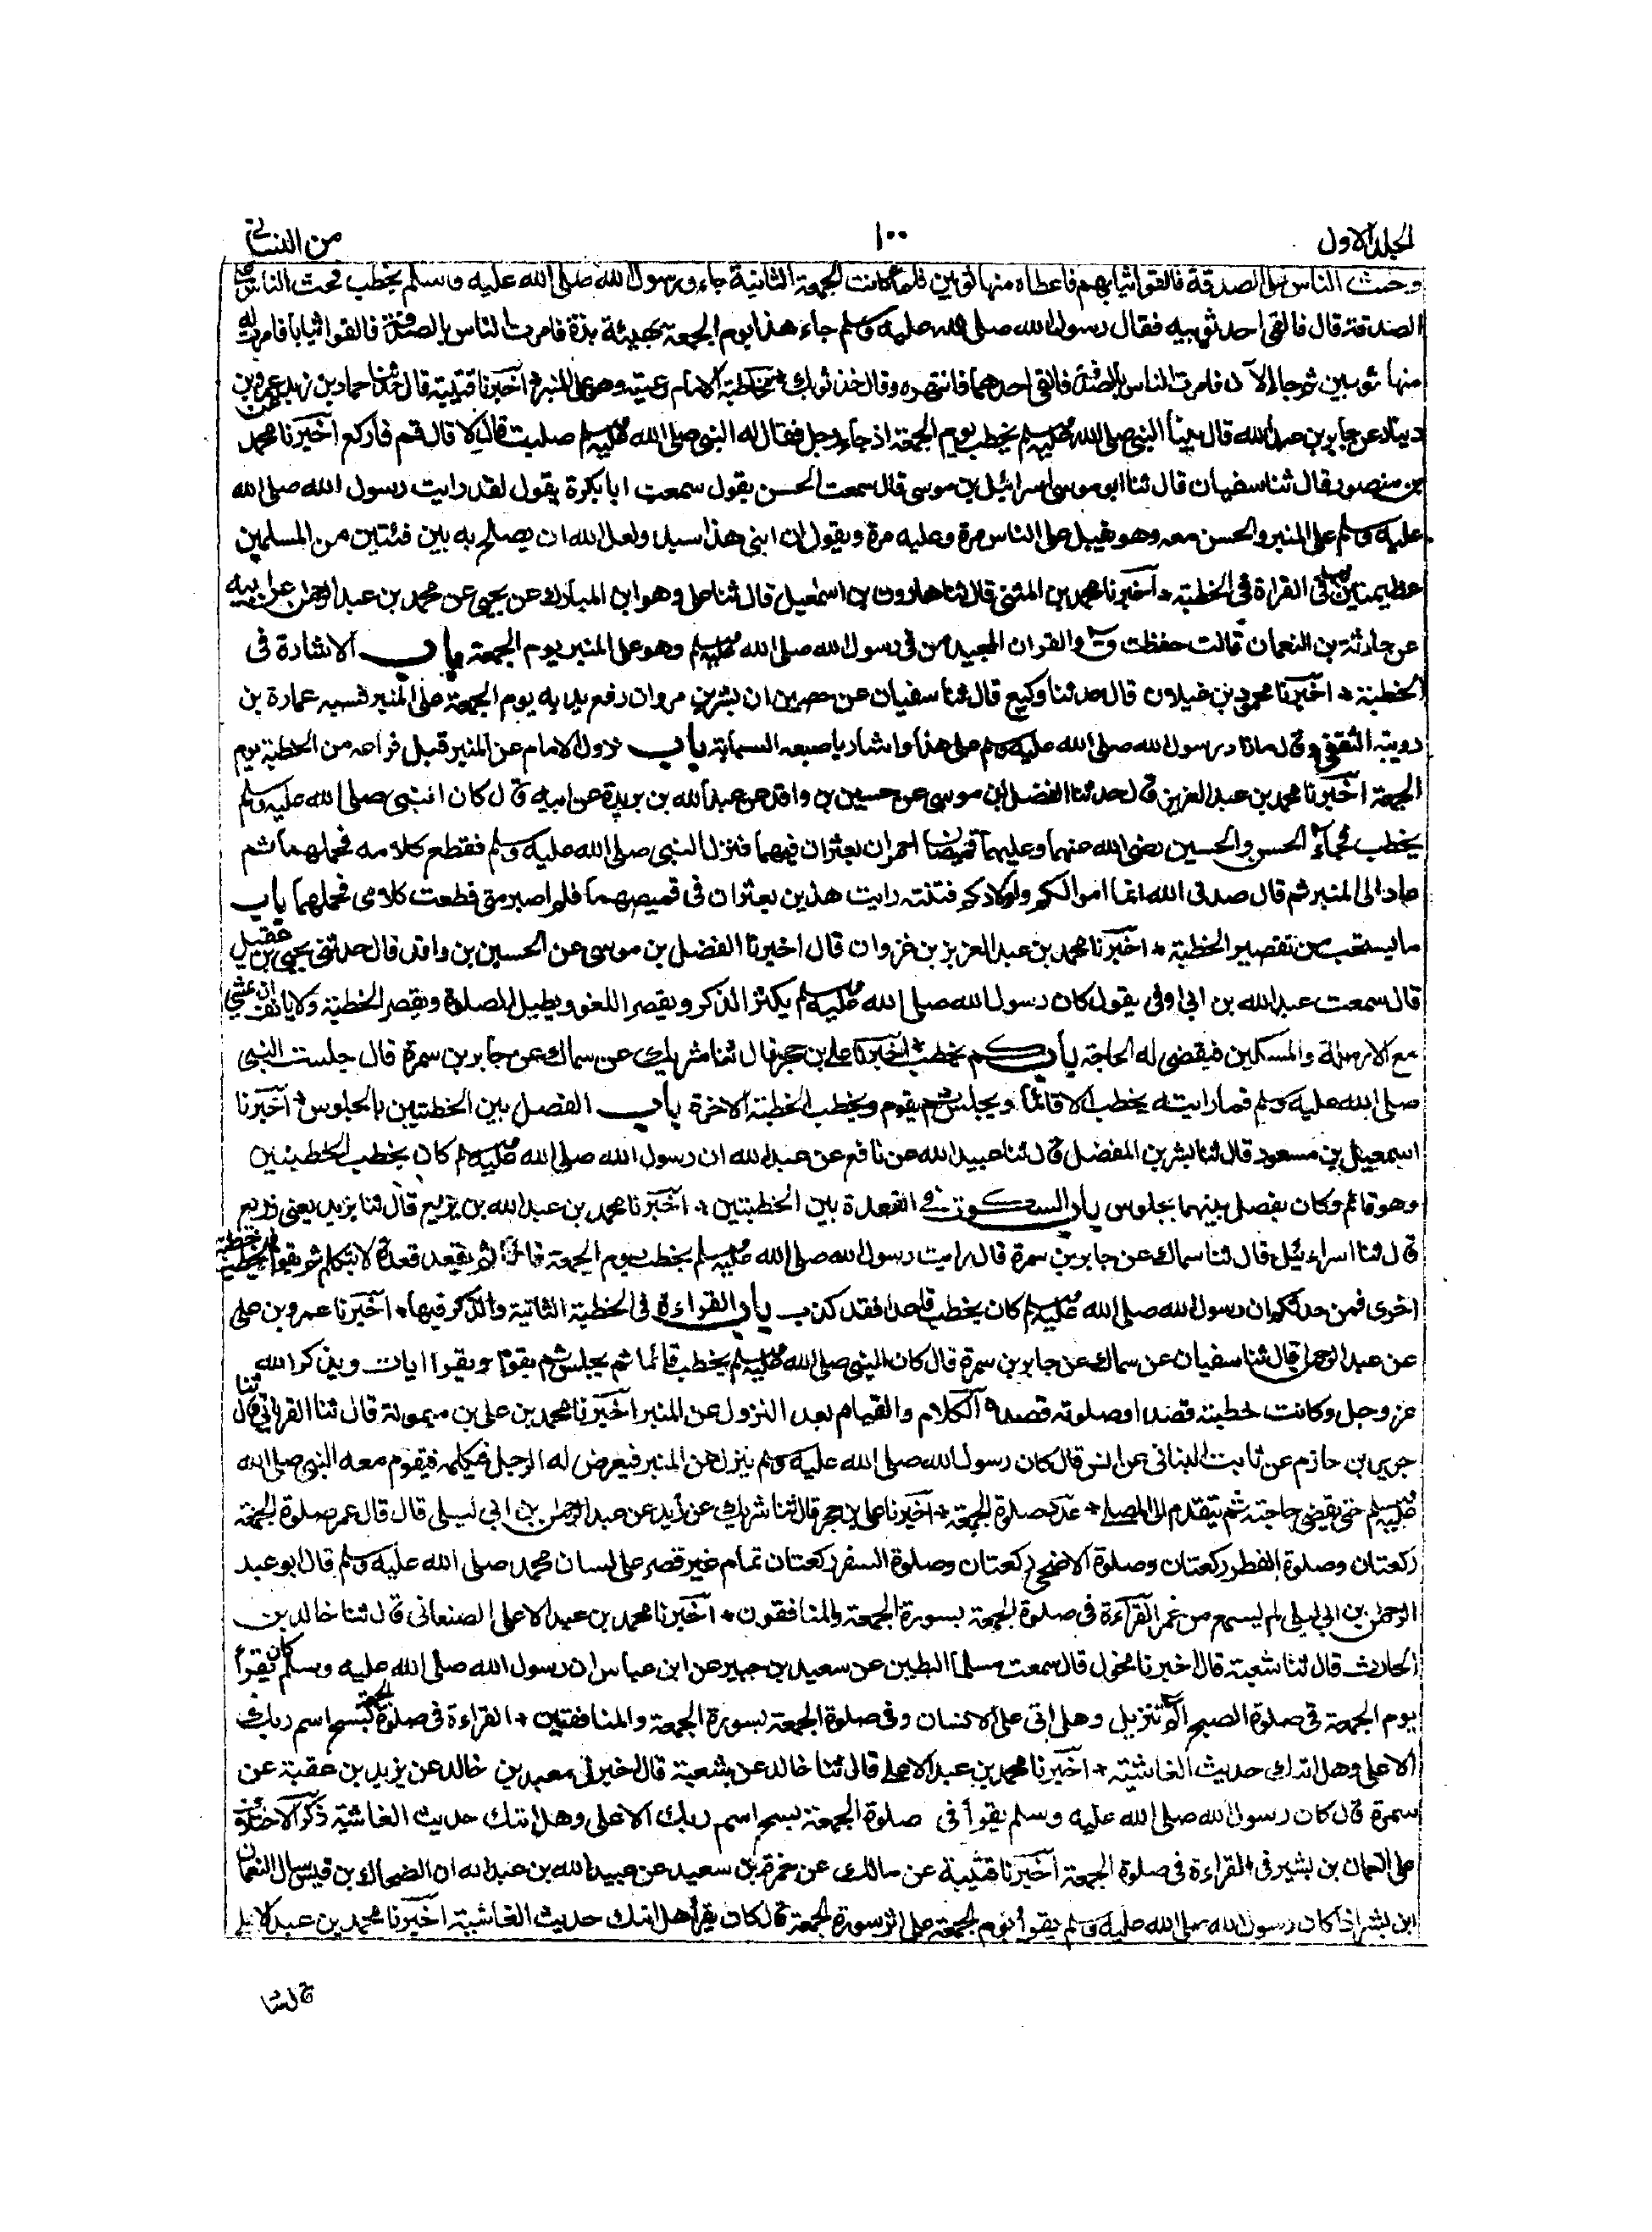 الجلد الاول ١٠٠ من النسائي
وحث الناس على الصدقة فالقوا ثيابهم فاعطاه منها ثوبين فلما كانت الجمعة الثانية جاء ورسول الله صلى الله عليه وسلم يخطب فحث الناس على
الصدقة قال فالقى احد ثوبيه فقال رسول الله صلى الله عليه وسلم جاء هذا يوم الجمعة بهيئة بذة فامرت الناس بالصدقة فالقوا ثيابا فامرت له
منها بثوبين ثم جاء الآن فامرت الناس بالصدقة فالقى احدهما فانتهره وقال خذ ثوبك * مخاطبة الامام رعيته وهو على المنبر * اخبرنا قتيبة قال حدثنا حماد بن زيد عن عمرو بن
دينار عن جابر بن عبد الله قال بينا النبي صلى الله عليه وسلم يخطب يوم الجمعة اذ جاء رجل فقال له النبي صلى الله عليه وسلم صليت قال لا قال قم فاركع اخبرنا محمد
بن منصور قال ثنا سفيان قال ثنا ابو موسى اسرائيل بن موسى قال سمعت الحسن يقول سمعت ابا بكرة يقول لقد رايت رسول الله صلى الله
عليه وسلم على المنبر والحسن معه وهو يقبل على الناس مرة وعليه مرة ويقول ان ابني هذا سيد ولعل الله ان يصلح به بين فئتين من المسلمين
عظيمتين القراءة في الخطبة * اخبرنا محمد بن المثنى قال ثنا هارون بن اسمعيل قال ثنا على وهو ابن المبارك عن يحيى عن محمد بن عبد الرحمن عن
عن حارثة بن النعمان قالت حفظت ق والقران المجيد من في رسول الله صلى الله عليه وسلم وهو على المنبر يوم الجمعة باب الاشارة في
الخطبة * اخبرنا محمود بن غيلان قال حدثنا وكيع قال ثنا سفيان عن حصين ان بشر بن مروان رفع يديه يوم الجمعة على المنبر فسبه عمارة بن
رويبة الثقفي وقال ما زاد رسول الله صلى الله عليه وسلم على هذا واشار باصبعه السبابة باب نزول الامام عن المنبر قبل فراغه من الخطبة يوم
الجمعة اخبرنا محمد بن عبد العزيز قال حدثنا الفضل بن موسى عن حسين بن واقد عن عبد الله بن بريدة عن ابيه قال كان النبي صلى الله عليه وسلم
يخطب فجاء الحسن والحسين رضى الله عنهما وعليهما قميصان احمران يعثران فيهما فنزل النبي صلى الله عليه وسلم فقطع كلامه فحملهما ثم
عاد الى المنبر ثم قال صدق الله انما اموالكم واولادكم فتنة رايت هذين يعثران في قميصهما فلم اصبر حتى قطعت كلامى فحملهما باب
ما يستحب من تقصير الخطبة * اخبرنا محمد بن عبد العزيز بن غزوان قال اخبرنا الفضل بن موسى عن الحسين بن واقد قال حدثني يحيى بن عقيل
قال سمعت عبد الله بن ابي اوفى يقول كان رسول الله صلى الله عليه وسلم يكثر الذكر ويقصر اللغو ويطيل الصلوة ويقصر الخطبة ولا يانف ان يمشى
مع الارملة والمسكين فيقضى له الحاجة باب كم يخطب * اخبرنا على بن حجر قال ثنا شريك عن سماك عن جابر بن سمرة قال جلست النبي
صلى الله عليه وسلم فما رايته يخطب الا قائما ويجلس ثم يقوم ويخطب الخطبة الاخرة باب الفصل بين الخطبتين بالجلوس * اخبرنا
اسمعيل بن مسعود قال ثنا بشر بن المفضل قال ثنا عبيد الله عن نافع عن عبد الله ان رسول الله صلى الله عليه وسلم كان يخطب الخطبتين
وهو قائم وكان يفصل بينهما بجلوس باب السكوت في القعدة بين الخطبتين * اخبرنا محمد بن عبد الله بن بزيع قال ثنا يزيد يعنى زريع
قال ثنا اسرائيل قال ثنا سماك عن جابر بن سمرة قال رايت رسول الله صلى الله عليه وسلم يخطب يوم الجمعة قائما ثم يقعد قعدة لا يتكلم ثم يقوم فيخطب خطبة
اخرى فمن حدثكم ان رسول الله صلى الله عليه وسلم كان يخطب قاعدا فقد كذب باب القراءة في الخطبة الثانية والذكر فيها * اخبرنا عمرو بن على
عن عبد الرحمن قال ثنا سفيان عن سماك عن جابر بن سمرة قال كان النبي صلى الله عليه وسلم يخطب قائما ثم يجلس ثم يقوم ويقرا ايات ويذكر الله
عز وجل وكانت خطبته قصدا وصلوته قصدا * الكلام والقيام بعد النزول عن المنبر اخبرنا محمد بن على بن ميمونة قال ثنا الفريابي قال ثنا
جرير بن حازم عن ثابت البنانى عن انس قال كان رسول الله صلى الله عليه وسلم ينزل عن المنبر فيعرض له الرجل فيكلمه فيقوم معه النبي صلى الله
عليه وسلم حتى يقضى حاجته ثم يتقدم الى المصلى * عدد صلوة الجمعة * اخبرنا على بن حجر قال ثنا شريك عن زبيد عن عبد الرحمن بن ابي ليلى قال قال عمر صلوة الجمعة
ركعتان وصلوة الفطر ركعتان وصلوة الاضحى ركعتان وصلوة السفر ركعتان تمام غير قصر على لسان محمد صلى الله عليه وسلم قال ابو عبد
الرحمن بن ابي ليلى لم يسمع من عمر القراءة في صلوة الجمعة بسورة الجمعة والمنافقون * اخبرنا محمد بن عبد الاعلى الصنعانى قال ثنا خالد بن
الحارث قال ثنا شعبة قال اخبرنا مخول قال سمعت مسلما البطين عن سعيد بن جبير عن ابن عباس ان رسول الله صلى الله عليه وسلم كان يقرأ
يوم الجمعة في صلوة الصبح الم تنزيل وهل اتى على الانسان وفى صلوة الجمعة بسورة الجمعة والمنافقين * القراءة في صلوة الجمعة بسبح اسم ربك
الاعلى وهل اتاك حديث الغاشية * اخبرنا محمد بن عبد الاعلى قال ثنا خالد عن شعبة قال اخبرنى معبد بن خالد عن يزيد بن عقبة عن
سمرة قال كان رسول الله صلى الله عليه وسلم يقرأ في صلوة الجمعة بسبح اسم ربك الاعلى وهل اتك حديث الغاشية ذكر الاختلاف
على النعمان بن بشير في القراءة في صلوة الجمعة اخبرنا قتيبة عن مالك عن ضمرة بن سعيد عن عبيد الله بن عبد الله ان الضحاك بن قيس سال النعمان
ابن بشير كان رسول الله صلى الله عليه وسلم يقرأ يوم الجمعة على اثر سورة الجمعة قال كان يقرأ هل اتك حديث الغاشية اخبرنا محمد بن عبد الاعلى
قال ثنا